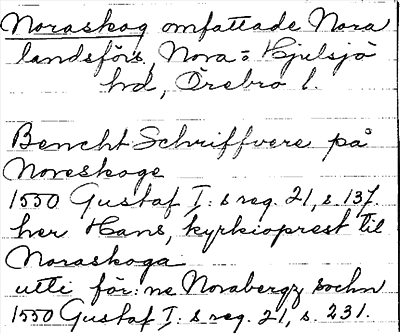 Noraskog omfattade Nora
landsförs., Nora= Hjulsjö
hd, Örebro l.
Bencht Schriffvere på
Noreskoge
1550 Gustaf I: s reg. 21, s. 137.
her Hans, kyrkioprest til
Noraskoga
utti för:ne Norabergz sochn
1550 Gustaf I: s reg. 21, s. 231.